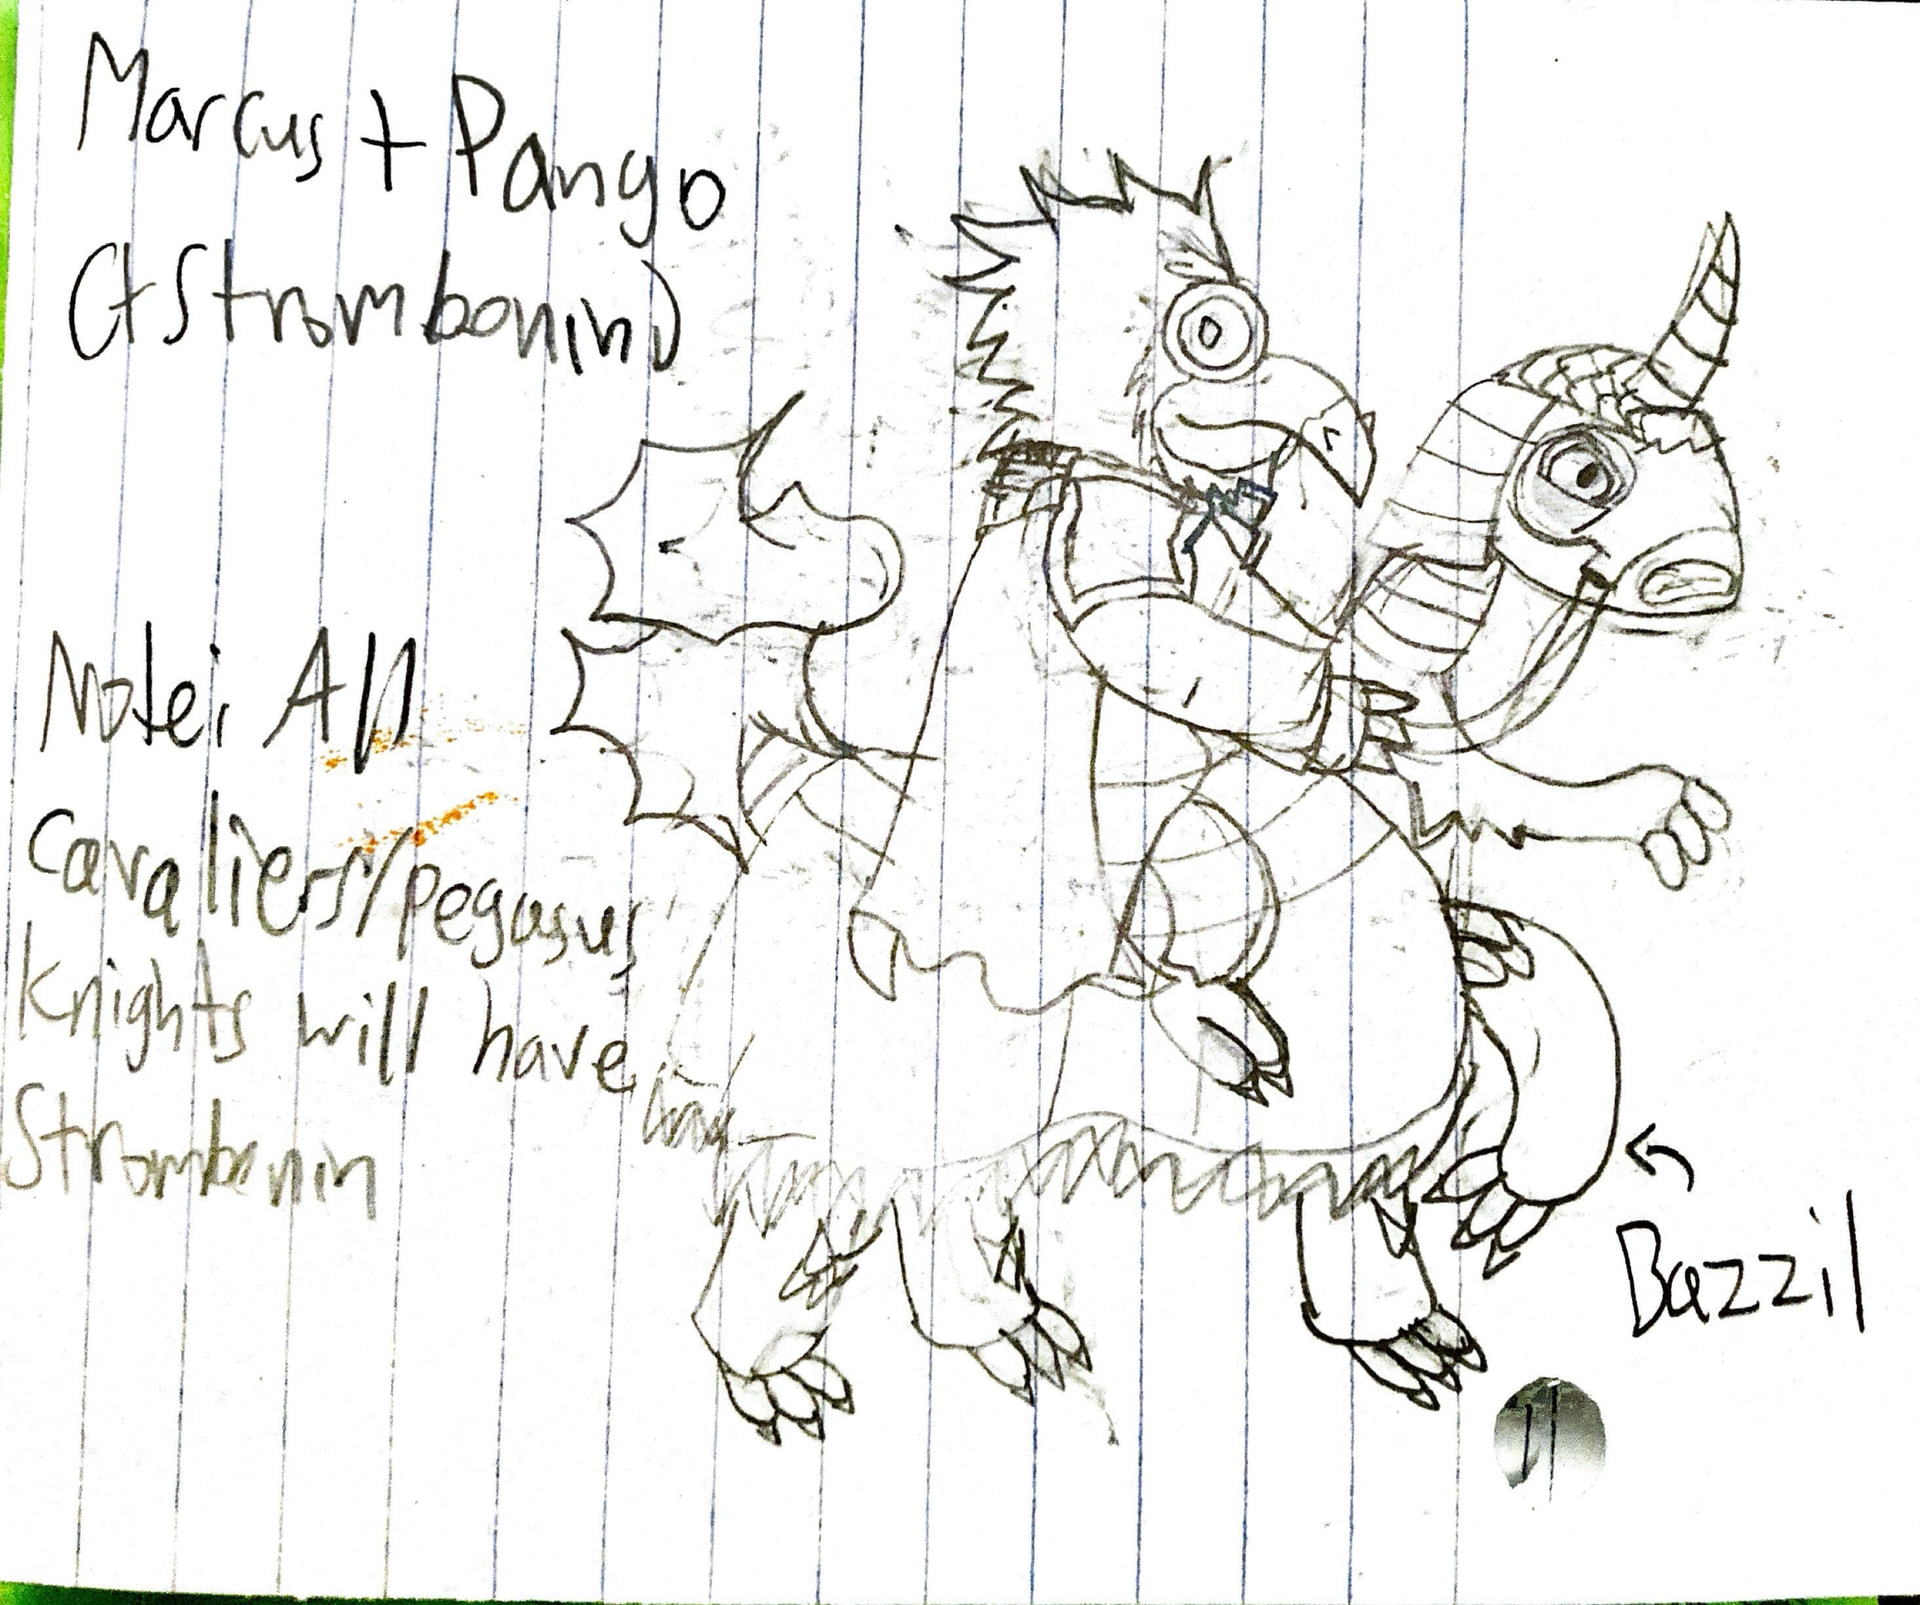 Marcus + Pango
(+Strombonin)
Note: All
Cavaliers/pegasus
Knights will have
Strombonin
Bazzil